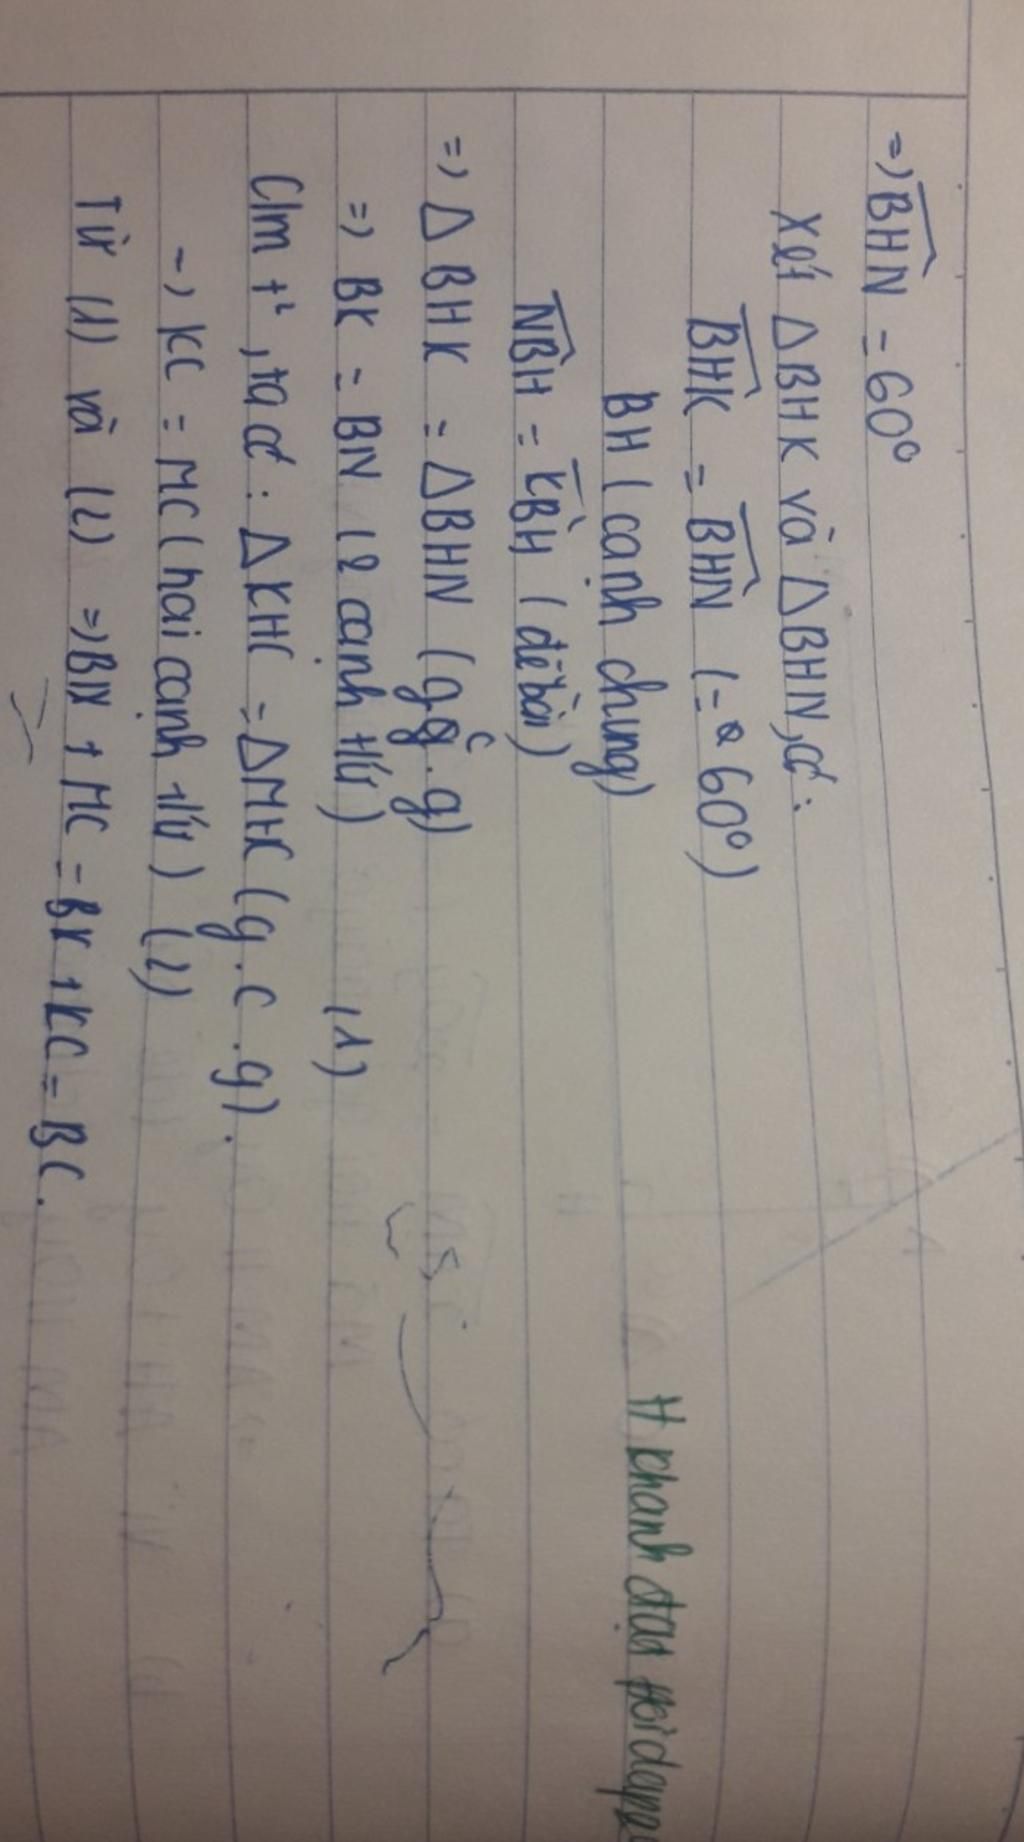 => BHN = 60°
Xét ΔBHK và ΔBHN, có:
BHK = BHN (= 60°)
BH (cạnh chung)
NBH = KBH (đề bài)
=> ΔBHK = ΔBHN (g.c.g)
=> BK = BN (2 cạnh t/ứ) (1)
C/m t², ta có: ΔKHC = ΔMHC (g.c.g).
-> KC = MC (hai cạnh t/ứ) (2)
Từ (1) và (2) => BN + MC = BK + KC = BC.
# khanh